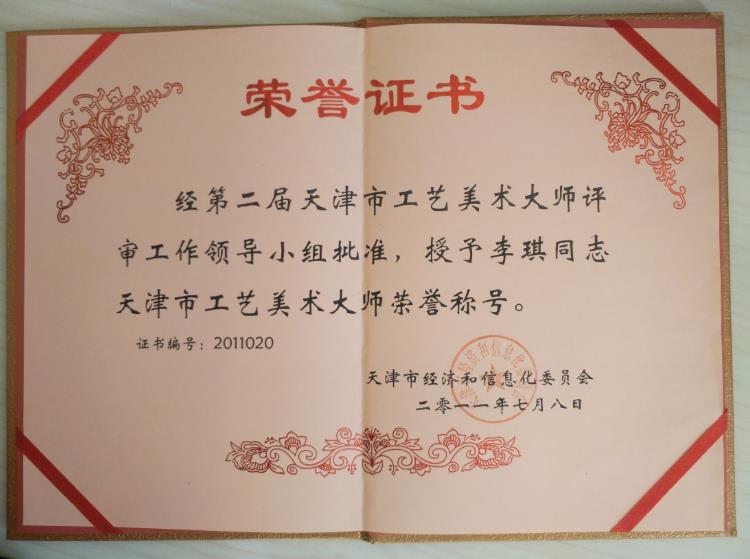 荣誉证书
经第二届天津市工艺美术大师评
审工作领导小组批准，授予李琪同志
天津市工艺美术大师荣誉称号。
证书编号：2011020
天津市经济和信息化委员会
二零一一年七月八日